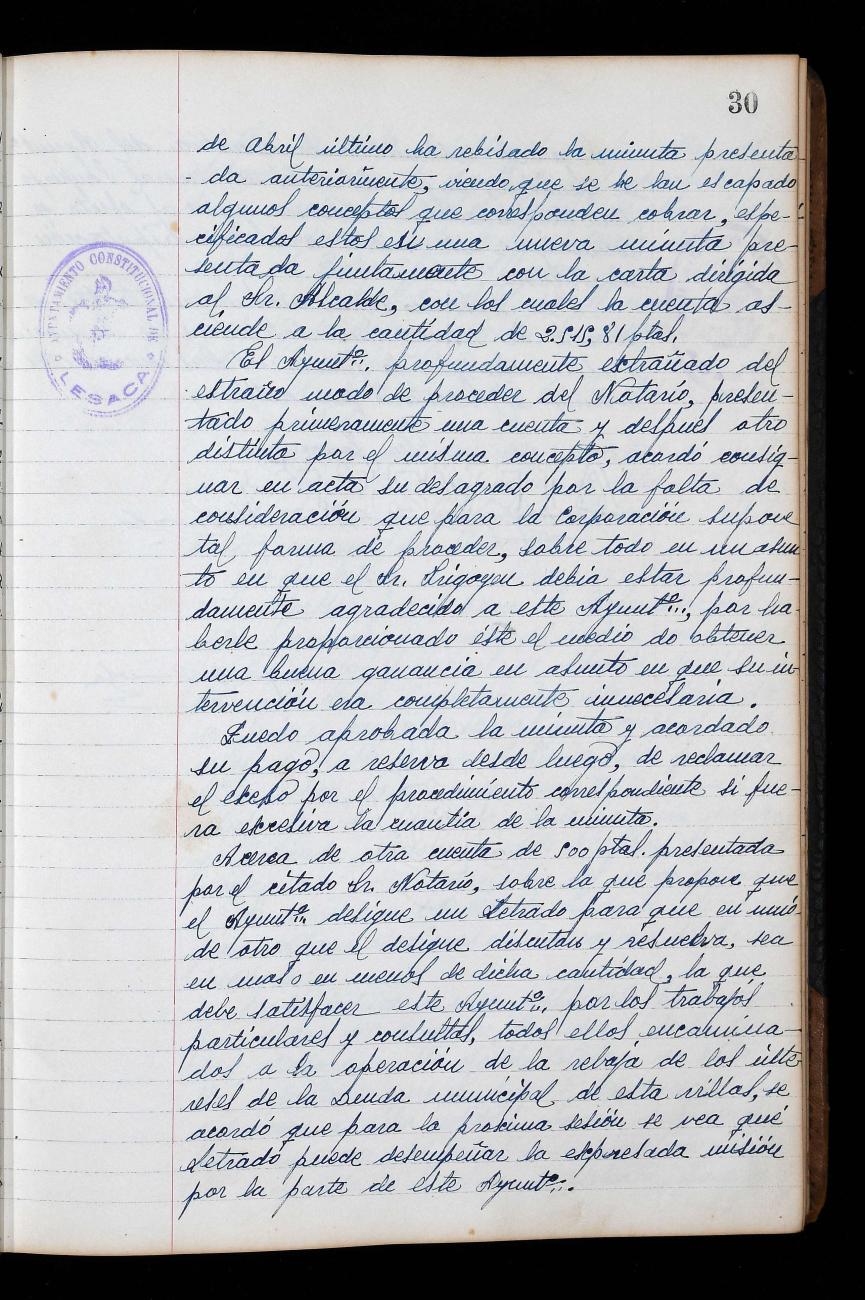 30
de Abril último ha rebisado la minuta presenta-
da anteriormente, viendo que se le han escapado
algunos conceptos que corresponden cobrar, espe-
cificados estos en una nueva minuta pre-
sentada juntamente con la carta dirigida
al Sr. Alcalde, con los cuales la cuenta as-
ciende a la cantidad de 2.515,81 ptas.
El Ayuntº. profundamente extrañado del
estraño modo de proceder del Notario, presen-
tado primeramente una cuenta y despues otro
distinta por el misma concepto, acordó consig-
nar en acta su desagrado por la falta de
consideración que para la Corporación supone
tal forma de proceder, sobre todo en un asun-
to en que el Sr. Irigoyen debia estar profun-
damente agradecido a este Ayuntº., por ha-
berle proporcionado éste el medio de obtener
una buena ganancia en asunto en que su in-
tervención era completamente innecesaria.
Quedo aprobada la minuta y acordado
su pago, a reserva desde luego, de reclamar
el exceso por el procedimiento correspondiente si fue-
ra excesiva la cuantía de la minuta.
Acerca de otra cuenta de 500 ptas. presentada
por el citado Sr. Notario, sobre la que propone que
el Ayuntº. designe un Letrado para que en unió-
de otro que él designe discutan y resuelva, sea
en mas o en menos de dicha cantidad, la que
debe satisfacer este Ayuntº. por los trabajos
particulares y consultas, todos ellos encamina-
dos a la operación de la rebaja de los inte-
reses de la Deuda municipal de esta villas, se
acordó que para la proxima sesión se vea qué
Letrado puede desempeñar la expresada misión
por la parte de este Ayuntº.
AYUNTAMIENTO CONSTITUCIONAL DE
LESACA